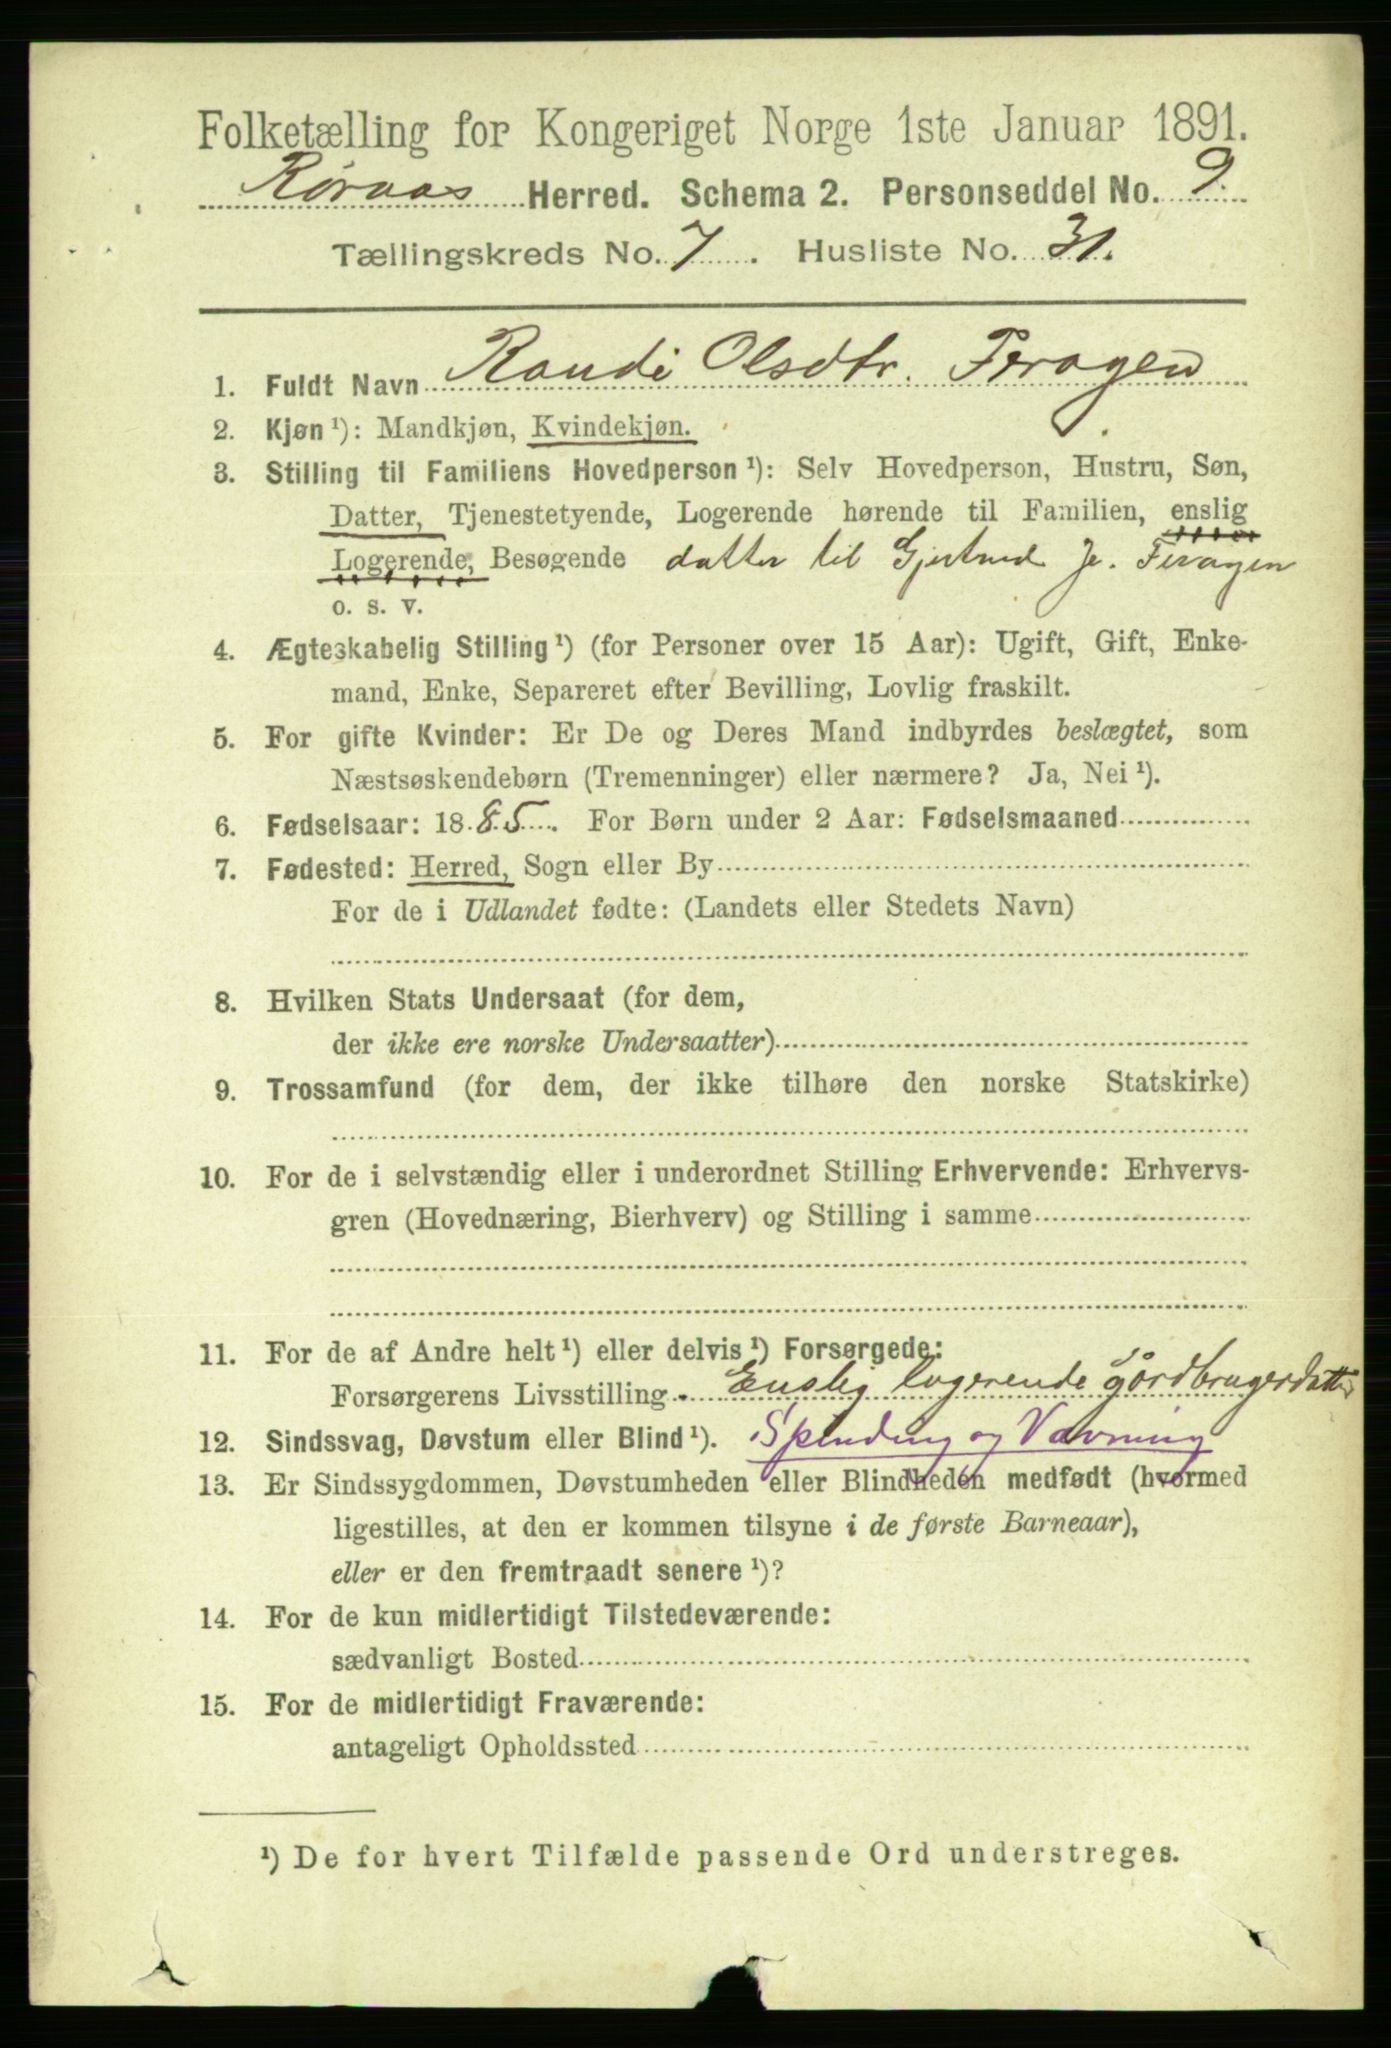 Folketælling for Kongeriget Norge 1ste Januar 1891.
Røraas Herred. Schema 2. Personseddel No. 9.
Tællingskreds No. 7. Husliste No. 31.
1. Fuldt Navn Randi Olsdtr. Feragen
2. Kjøn ¹): Mandkjøn, Kvindekjøn.
3. Stilling til Familiens Hovedperson ¹): Selv Hovedperson, Hustru, Søn,
Datter, Tjenestetyende, Logerende hørende til Familien, enslig
Logerende, Besøgende datter til Gjertrud J. Feragen
o. s. v.
4. Ægteskabelig Stilling ¹) (for Personer over 15 Aar): Ugift, Gift, Enke-
mand, Enke, Separeret efter Bevilling, Lovlig fraskilt.
5. For gifte Kvinder: Er De og Deres Mand indbyrdes beslægtet, som
Næstsøskendebørn (Tremenninger) eller nærmere? Ja, Nei ¹).
6. Fødselsaar: 1885. For Børn under 2 Aar: Fødselsmaaned
7. Fødested: Herred, Sogn eller By
For de i Udlandet fødte: (Landets eller Stedets Navn)
8. Hvilken Stats Undersaat (for dem,
der ikke ere norske Undersaatter)
9. Trossamfund (for dem, der ikke tilhøre den norske Statskirke)
10. For de i selvstændig eller i underordnet Stilling Erhvervende: Erhvervs-
gren (Hovednæring, Bierhverv) og Stilling i samme
11. For de af Andre helt ¹) eller delvis ¹) Forsørgede:
Forsørgerens Livsstilling Enslig logerende gårdbrugerdatter
12. Sindssvag, Døvstum eller Blind ¹). Spinding og Vævning
13. Er Sindssygdommen, Døvstumheden eller Blindheden medfødt (hvormed
ligestilles, at den er kommen tilsyne i de første Barneaar),
eller er den fremtraadt senere ¹)?
14. For de kun midlertidigt Tilstedeværende:
sædvanligt Bosted
15. For de midlertidigt Fraværende:
antageligt Opholdssted
¹) De for hvert Tilfælde passende Ord understreges.